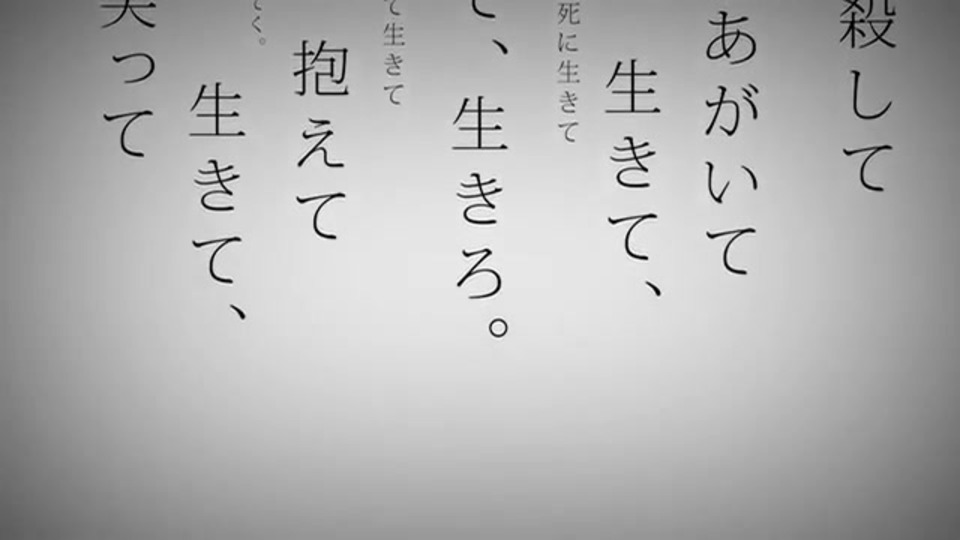 殺して
あがいて
生きて、
死に生きて
て、生きろ。
て生きて
抱えて
てく。
生きて、
笑って